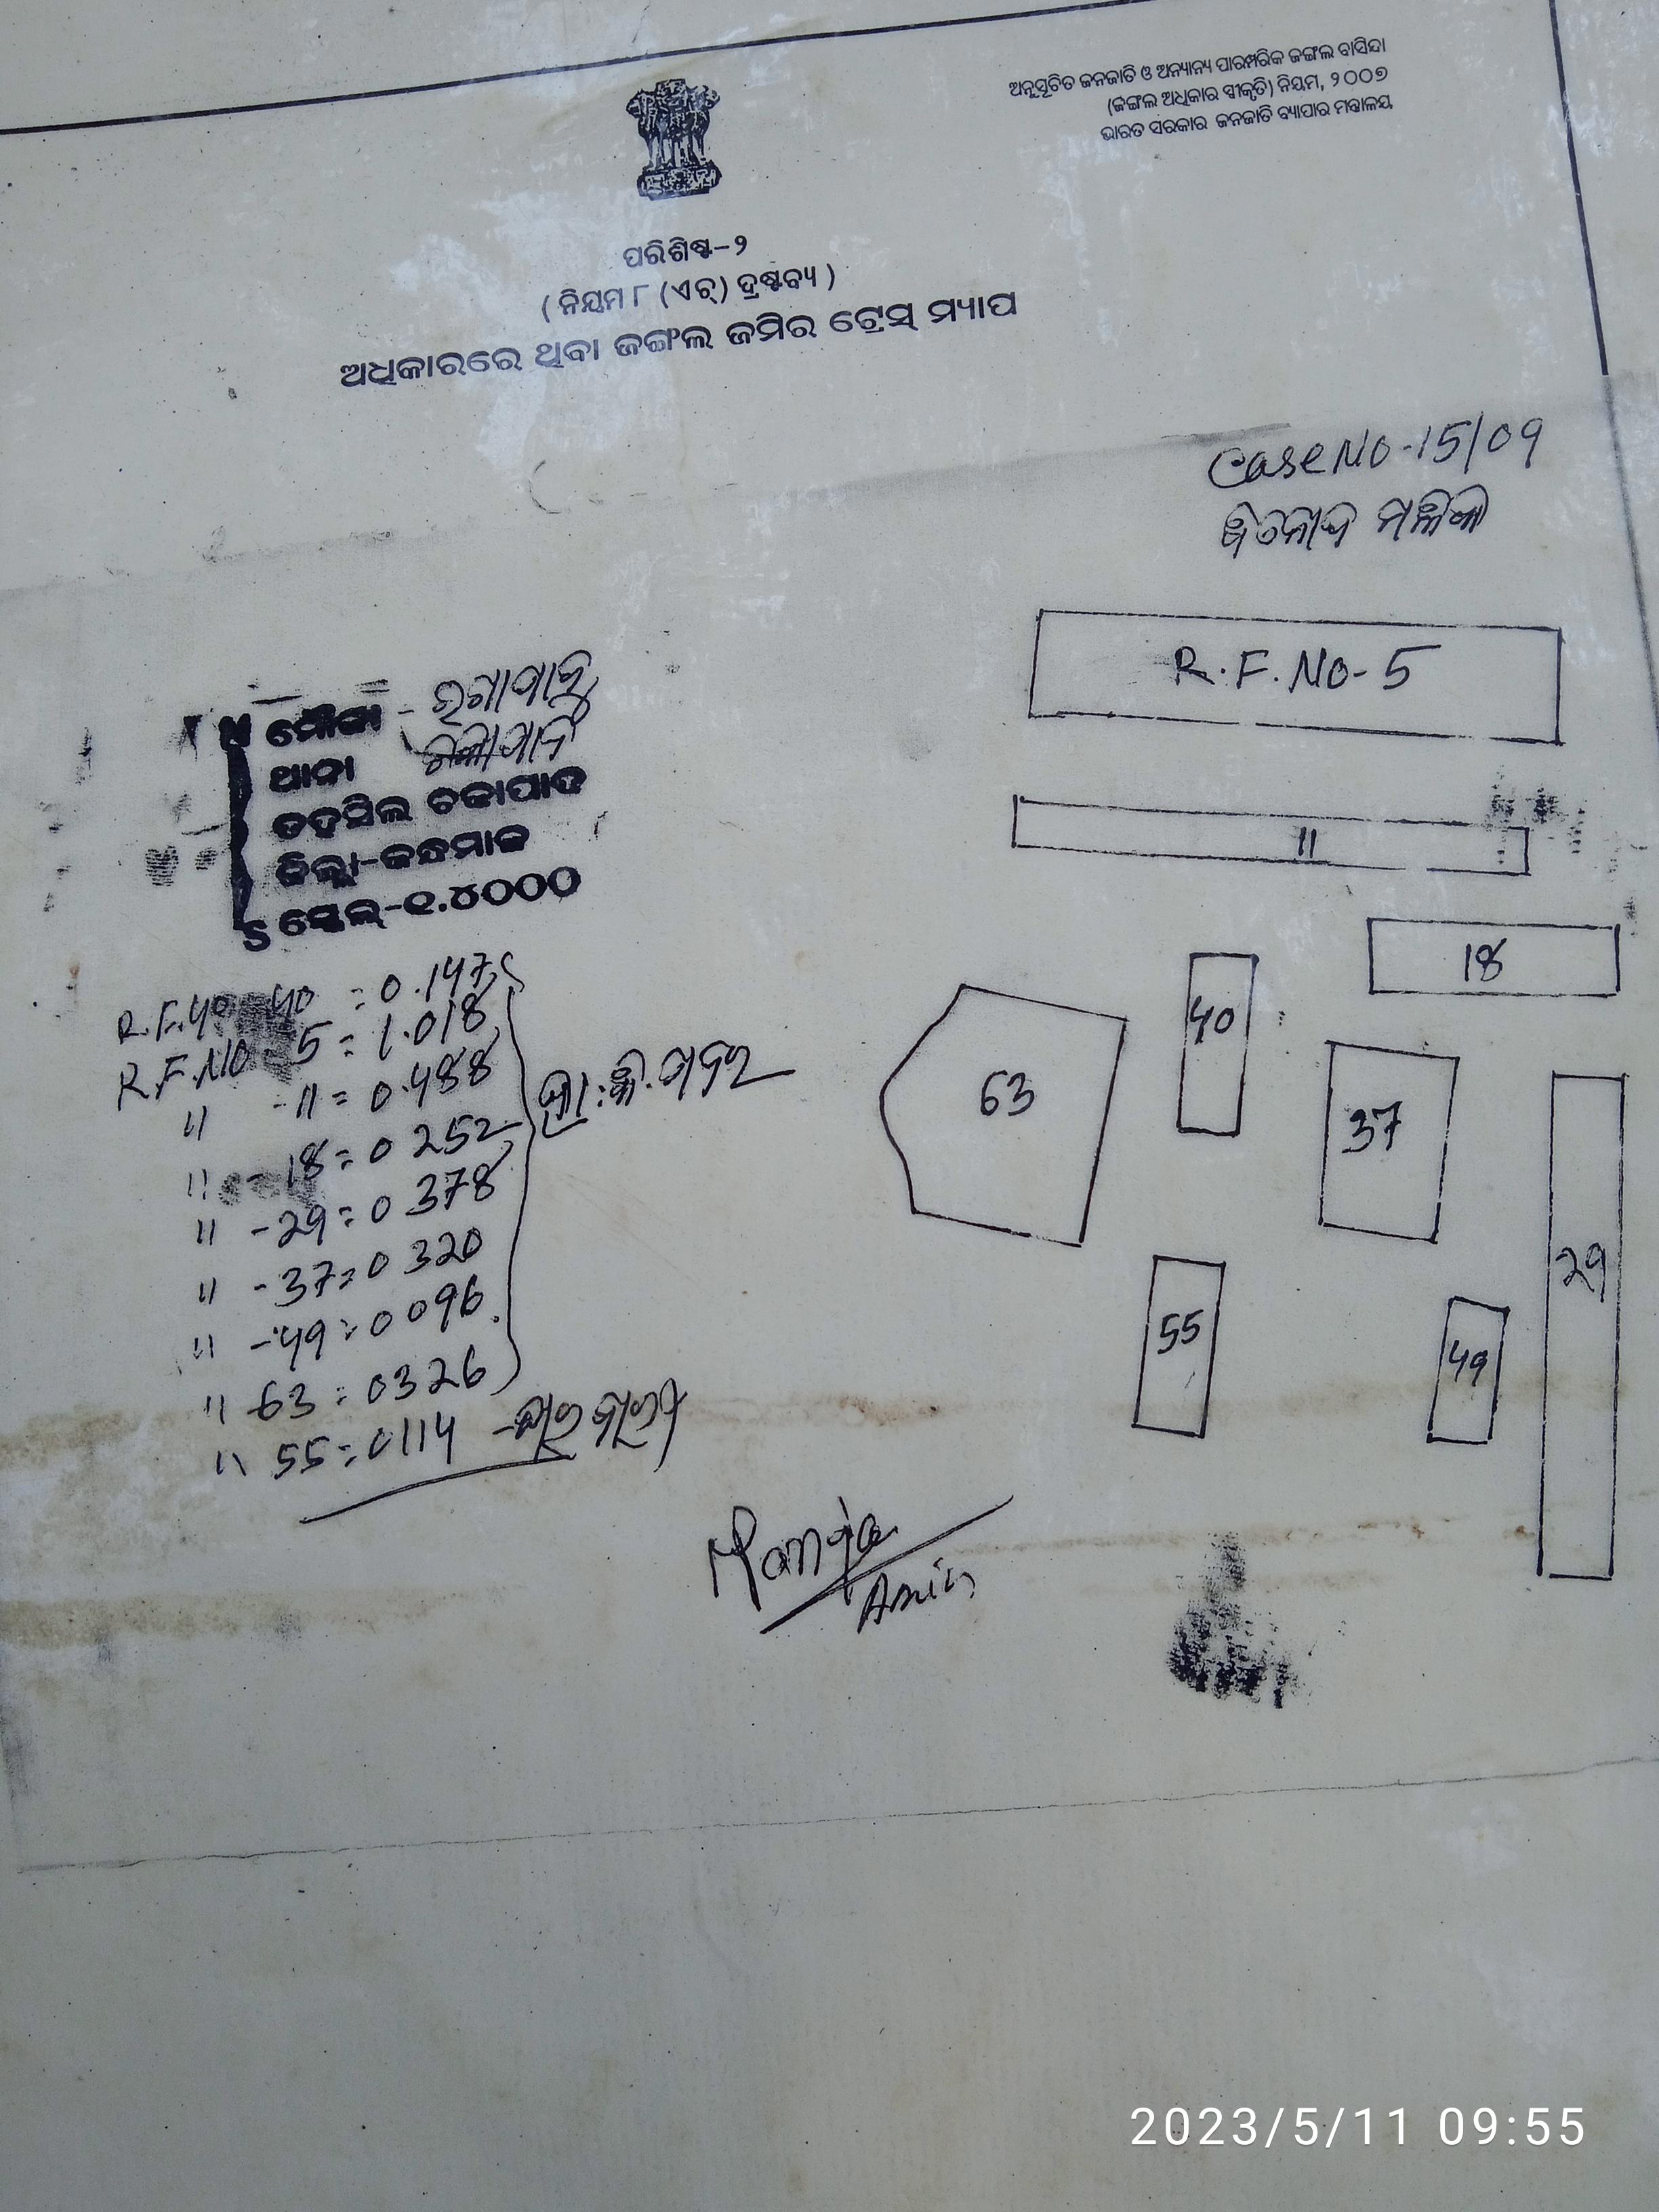 ଅନୁସୂଚିତ ଜନଜାତି ଓ ଅନ୍ୟାନ୍ୟ ପାରମ୍ପରିକ ଜଙ୍ଗଲ ବାସିନ୍ଦା
(ଜଙ୍ଗଲ ଅଧିକାର ସ୍ୱୀକୃତି) ନିୟମ, ୨୦୦୭
ଭାରତ ସରକାର ଜନଜାତି ବ୍ୟାପାର ମନ୍ତ୍ରାଳୟ
ପରିଶିଷ୍ଟ-୨
( ନିୟମ ୮ (ଏଚ୍) ଦ୍ରଷ୍ଟବ୍ୟ )
ଅଧିକାରରେ ଥିବା ଜଙ୍ଗଲ ଜମିର ଟ୍ରେସ୍ ମ୍ୟାପ
Case No-15/09
ବିନୋଦ ମଲ୍ଲିକ
N ମୌଜା -
ଥାନା ଚକାପାଦ
ତହସିଲ ଚକାପାଦ
ଜିଲ୍ଲା-କନ୍ଧମାଳ
S ସ୍କେଲ୍-୧.୪୦୦୦
R.F.NO-5
11
18
40
63
37
29
55
49
R.F.40 40 = 0.147
R.F.NO - 5 = 1.018
" -11 = 0.488
" -18 = 0 252
" -29 = 0 378
" -37 = 0 320
" -49 = 0 096
" 63 = 0326
" 55 = 0114
Amin
2023/5/11 09:55